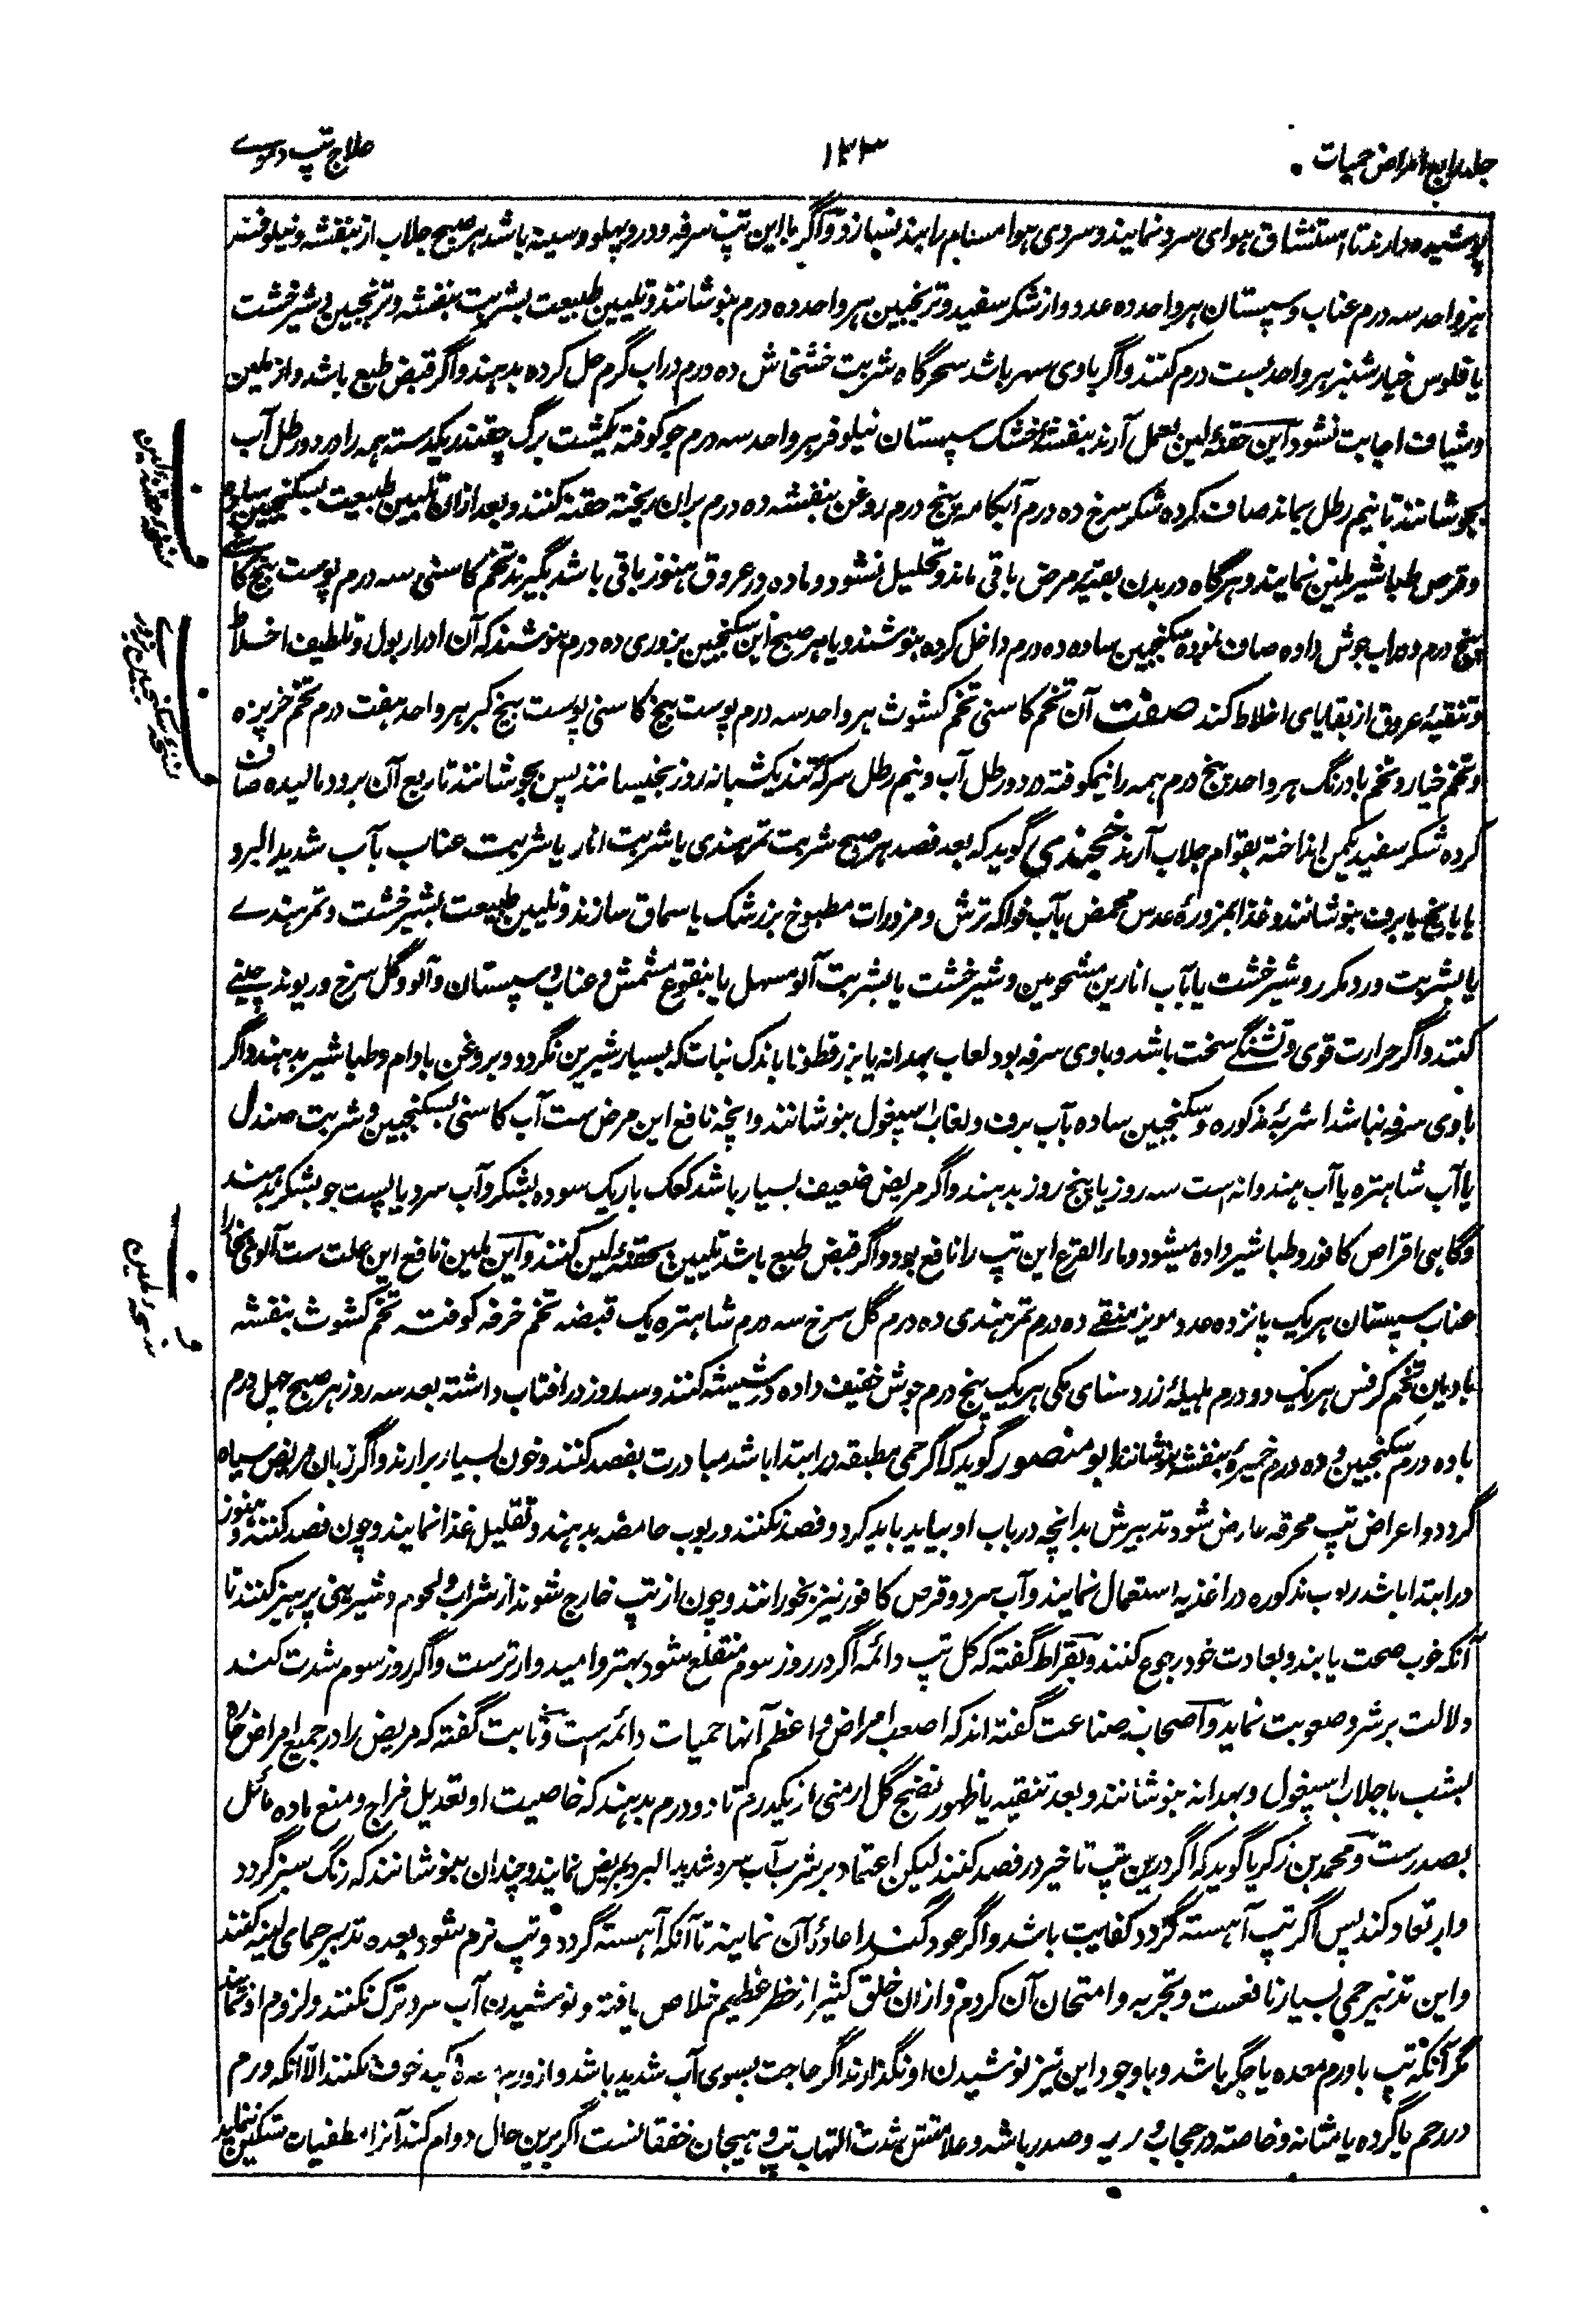 جلد رابع امراض حمیات
۱۳۳
علاج تپ دموی
پوشیده دارند تا استنشاق هوای سرد نمایند و سردی هوا مسام را بند نسازد و اگر با این تپ سرفه و درد پهلو و سینه باشد هر صبح جلاب از بنفشه و نیلوفر
هر واحد سه درم عناب و سپستان هر واحد ده عدد و از شکر سفید و ترنجبین هر واحد ده درم بنوشانند و تلیین طبیعت بشربت بنفشه و ترنجبین و شیرخشت
یا فلوس خیارشنبر هر واحد بست درم کنند و اگر باوی سهر باشد سحرگاه شربت خشخاش ده درم در آب گرم حل کرده بدهند و اگر قبض طبع باشد و از ملین
و شیاف اجابت نشود این حقنهٔ لین بعمل آرند بنفشهٔ خشک سپستان نیلوفر هر واحد سه درم جو کوفته یکمشت برگ چقندر یکدسته همه را در دو رطل آب
بجوشانند تا نیم رطل بماند صاف کرده شکر سرخ ده درم آبکامه پنج درم روغن بنفشه ده درم بران ریخته حقنه کنند و بعد ازان تلیین طبیعت بسکنجبین ساده
و قرص طباشیر ملین نمایند و هرگاه در بدن بقیهٔ مرض باقی ماند و تحلیل نشود و ماده در عروق هنوز باقی باشد بگیرند تخم کاسنی سه درم پوست بیخ کاسنی
پنج درم در آب جوش داده صاف نموده سکنجبین ساده ده درم داخل کرده بنوشند و یا هر صبح این سکنجبین بزوری ده درم بنوشند که آن ادرار بول و تلطیف اخلاط
و تنقیهٔ عروق از بقایای اخلاط کند صفت آن تخم کاسنی تخم کشوث هر واحد سه درم پوست بیخ کاسنی پوست بیخ کبر هر واحد هفت درم تخم خرپزه
و تخم خیار و تخم بادرنگ هر واحد پنج درم همه را نیمکوفته در دو رطل آب و نیم رطل سرکه تند یکشبانه روز بخیسانند پس بجوشانند تا ربع آن برود مالیده صاف
کرده شکر سفید یکمن انداخته بقوام جلاب آرند خجندی گوید که بعد فصد هر صبح شربت تمرهندی یا شربت انار یا شربت عناب بآب شدید البرد
یا با یخ یا برف بنوشانند و غذا بمزورهٔ عدس محمض بآب فواکه ترش و مزورات مطبوخ بزرشک یا سماق سازند و تلیین طبیعت بشیرخشت و تمرهندی
یا بشربت ورد مکرر و شیرخشت یا بآب انارین مشحومین و شیرخشت یا بشربت آلو مسهل یا بنقوع مشمش و عناب و سپستان و آلو و گل سرخ و ریوند چینی
کنند و اگر حرارت قوی و تشنگی سخت باشد و باوی سرفه بود لعاب بهدانه یا بزرقطونا باندک نبات که بسیار شیرین نگردد و بروغن بادام و طباشیر بدهند و اگر
باوی سرفه نباشد اشربهٔ مذکوره و سکنجبین ساده بآب برف و لعاب اسپغول بنوشانند و آنچه نافع این مرض ست آب کاسنی بسکنجبین و شربت صندل
یا آب شاهتره یا آب هندوانه است سه روز یا پنج روز بدهند و اگر مریض ضعیف بسیار باشد کعک باریک سوده بشکر و آب سرد یا پست جو بشکر بدهند
و گاهی اقراص کافور و طباشیر داده میشود و ماء القرع این تپ را نافع بود و اگر قبض طبع باشد تلیین بحقنهٔ لین کنند و این ملین نافع این علت ست آلوی بخارا
عناب سپستان هر یک پانزده عدد مویز منقی ده درم تمرهندی ده درم گل سرخ سه درم شاهتره یک قبضه تخم خرفه کوفته تخم کشوث بنفشه
بادیان تخم کرفس هر یک دو درم هلیلهٔ زرد سنای مکی هر یک پنج درم جوش خفیف داده در شیشه کنند و سه روز در آفتاب داشته بعد سه روز هر صبح چهل درم
با ده درم سکنجبین و ده درم خمیرهٔ بنفشه بنوشانند ابو منصور گوید که اگر حمی مطبقه در ابتدا باشد مبادرت بفصد کنند و خون بسیار برآرند و اگر زبان مریض سیاه
گردد و اعراض تپ محرقه عارض شود تدبیرش بدانچه در باب او بیاید باید کرد و فصد نکنند و ربوب حامضه بدهند و تقلیل غذا نمایند و چون فصد کنند و هنوز
در ابتدا باشد ربوب مذکوره در اغذیه استعمال نمایند و آب سرد و قرص کافور نیز بخورانند و چون از تپ خارج شوند از شراب و لحوم و شیرینی پرهیز کنند تا
آنکه خوب صحت یابند و بعادت خود رجوع کنند و بقراط گفته که کل تپ دائمه اگر در روز سوم منقلع شود بهتر و امیدوارترست و اگر روز سوم شدت کند
دلالت بر شر و صعوبت نماید و اصحاب صناعت گفته اند که اصعب امراض و اعظم آنها حمیات دائمه است و ثابت گفته که مریض را در جمیع امراض حاره
بشب با جلاب اسپغول و بهدانه بنوشانند و بعد تنقیه یا ظهور نضج گل ارمنی از یکدرم تا دو درم بدهند که خاصیت او تعدیل مزاج و منع ماده مائل
بصدرست و محمد بن زکریا گوید که اگر درین تپ تاخیر در فصد کنند لیکن اعتماد بر شرب آب سرد شدید البرد بمریض نمایند و چندان بنوشانند که رنگ سبز گردد
و ارتعاد کند پس اگر تپ آهسته گردد کفایت باشد و اگر عود کند اعادهٔ آن نمایند تا آنکه آهسته گردد و تپ نرم شود بعده تدبیر حمای لینه کنند
و این تدبیر حمی بسیار نافعست و تجربه و امتحان آن کردم و ازان خلق کثیر از خطر عظیم خلاص یافته و نوشیدن آب سرد ترک نکنند و لزوم او نمایند
مگر آنکه تپ با ورم معده یا جگر باشد و با وجود این نیز نوشیدن او نگذارند اگر حاجت بسوی آب شدید باشد و از ورم معده و کبد خوف نکنند الا آنکه ورم
در رحم یا گرده یا مثانه و خاصته در حجاب و ریه و صدر باشد و علامتش شدت التهاب تپ و هیجان خفقانست اگر برین حال دوام کند آنرا مطفیات تسکین ننماید
نسخهٔ حقنه لین
نسخهٔ سکنجبین بزوری
نسخهٔ ملین